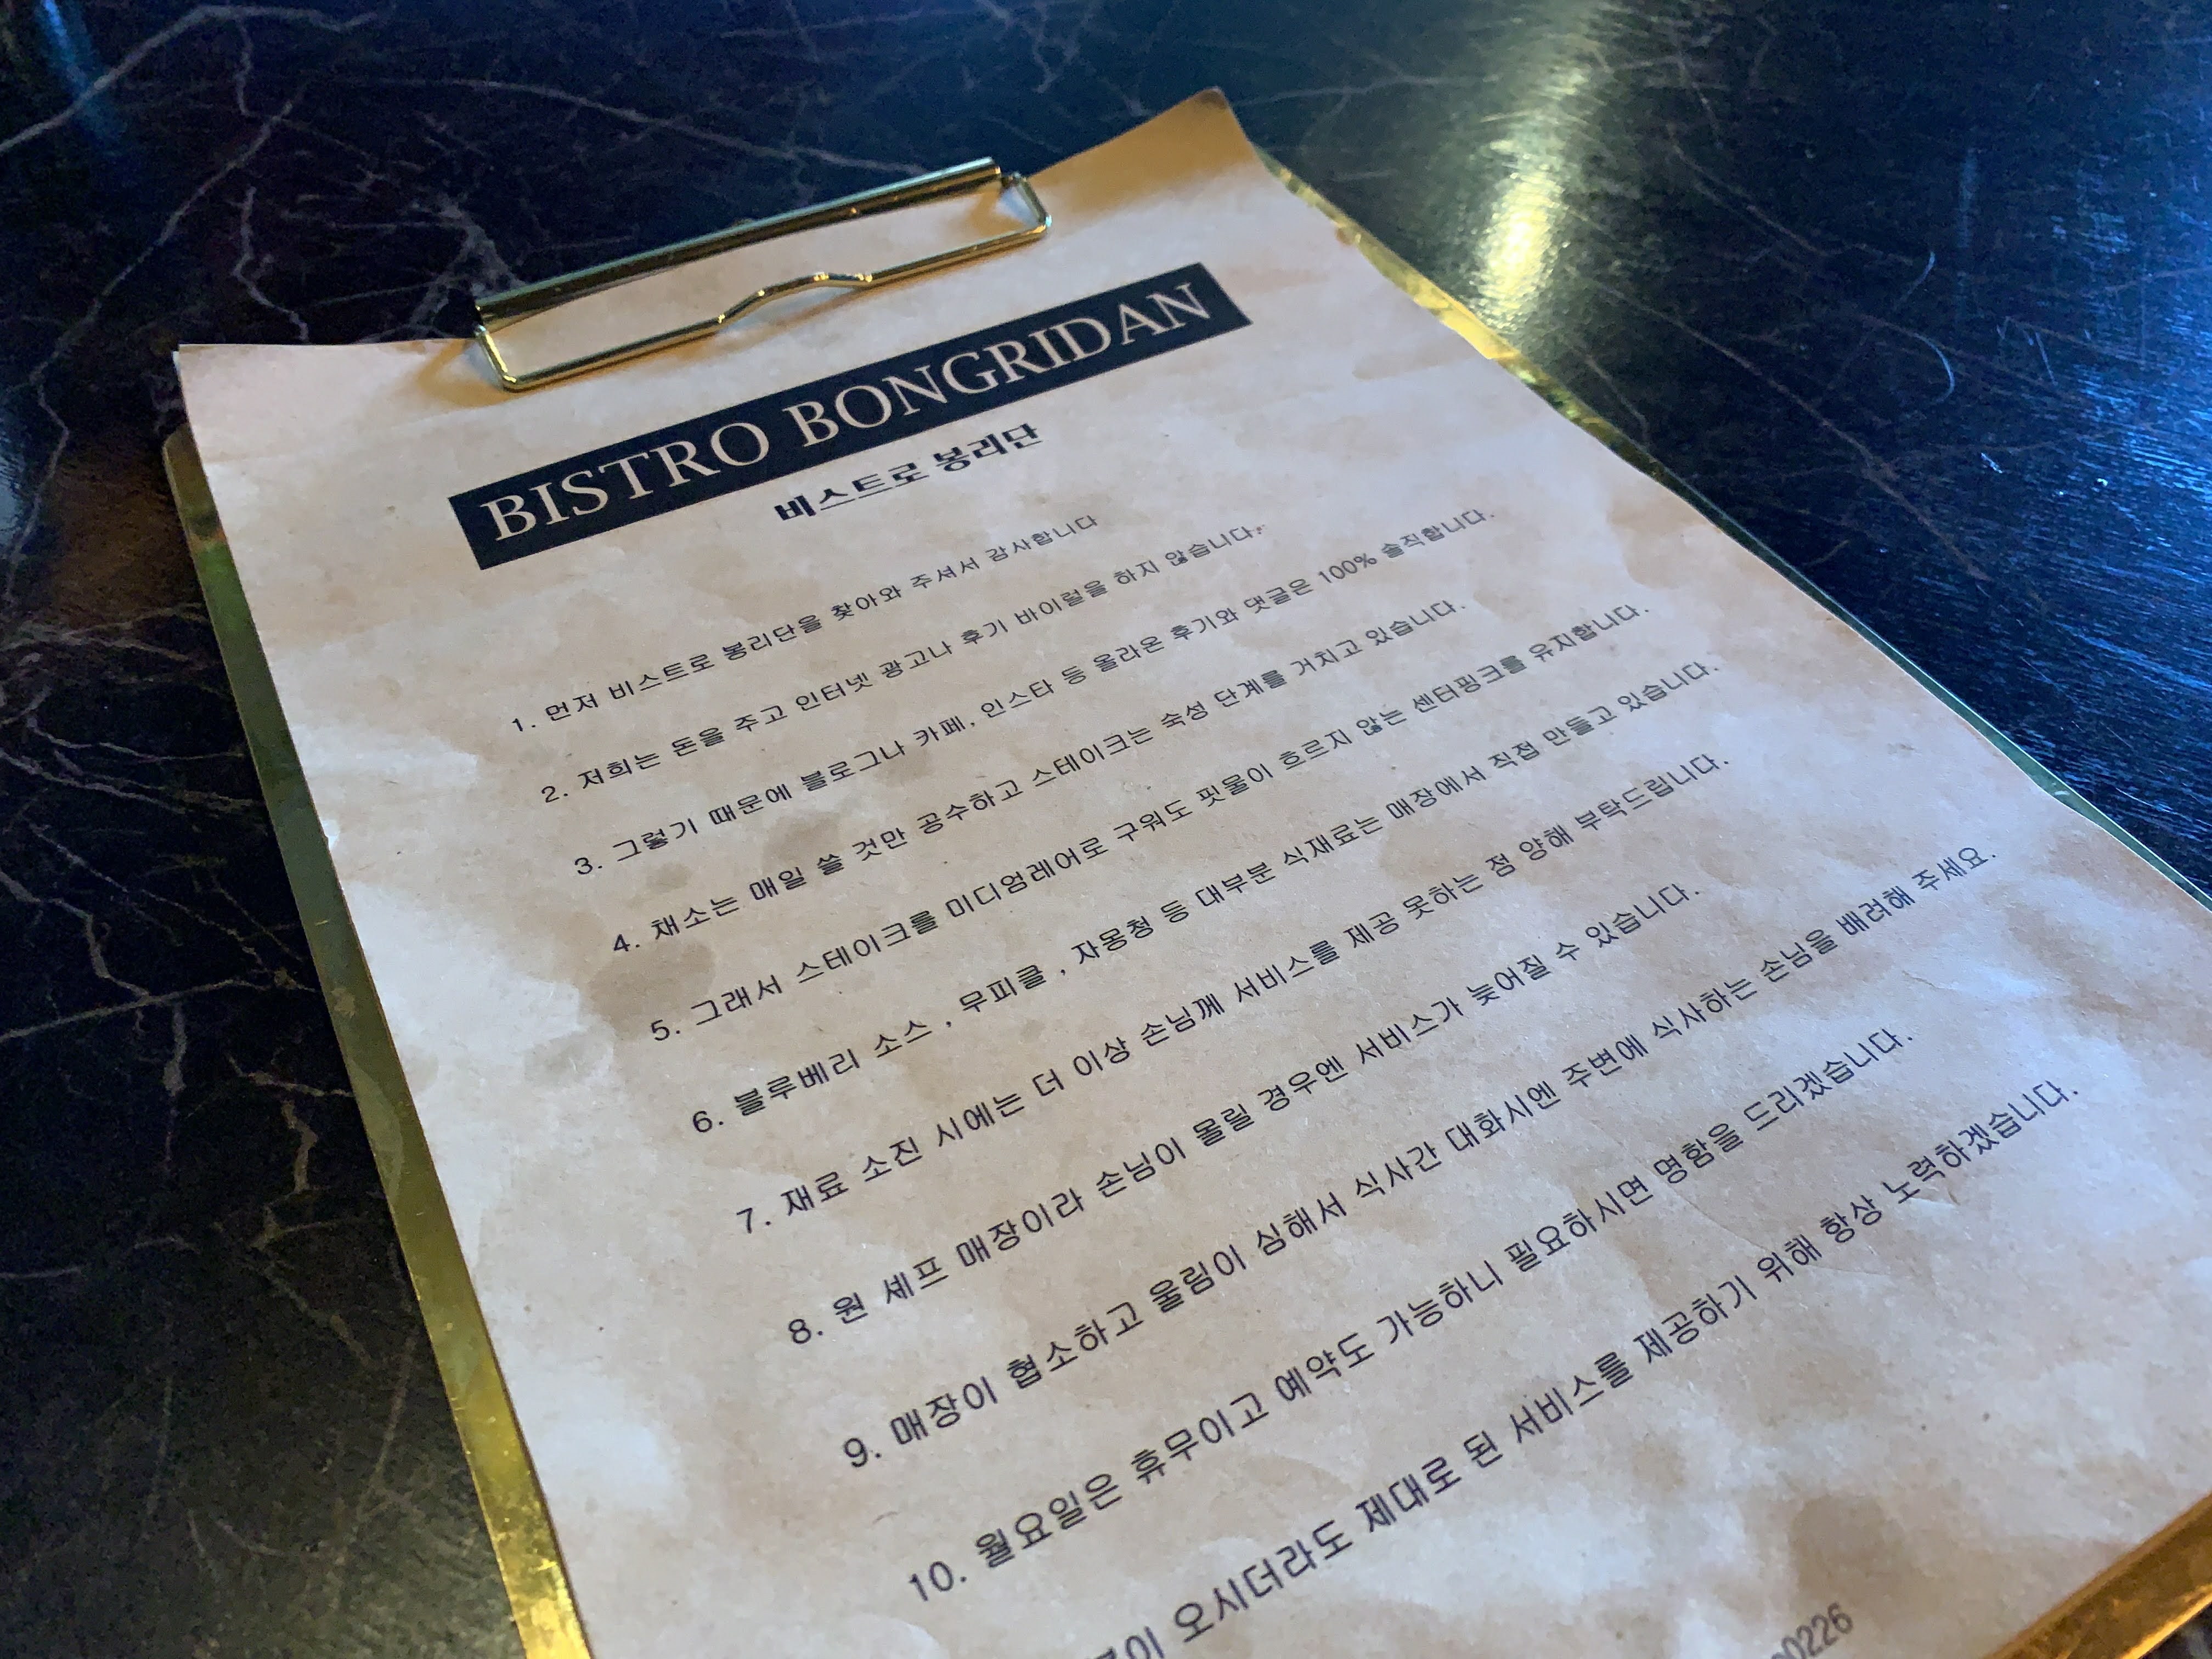 BISTRO BONGRIDAN
비스트로 봉리단
1. 먼저 비스트로 봉리단을 찾아와 주셔서 감사합니다
2. 저희는 돈을 주고 인터넷 광고나 후기 바이럴을 하지 않습니다.
3. 그렇기 때문에 블로그나 카페, 인스타 등 올라온 후기와 댓글은 100% 솔직합니다.
4. 채소는 매일 쓸 것만 공수하고 스테이크는 숙성 단계를 거치고 있습니다.
5. 그래서 스테이크를 미디엄레어로 구워도 핏물이 흐르지 않는 센터핑크를 유지합니다.
6. 블루베리 소스 , 무피클 , 자몽청 등 대부분 식재료는 매장에서 직접 만들고 있습니다.
7. 재료 소진 시에는 더 이상 손님께 서비스를 제공 못하는 점 양해 부탁드립니다.
8. 원 셰프 매장이라 손님이 몰릴 경우엔 서비스가 늦어질 수 있습니다.
9. 매장이 협소하고 울림이 심해서 식사간 대화시엔 주변에 식사하는 손님을 배려해 주세요.
10. 월요일은 휴무이고 예약도 가능하니 필요하시면 명함을 드리겠습니다.
오시더라도 제대로 된 서비스를 제공하기 위해 항상 노력하겠습니다.
0226